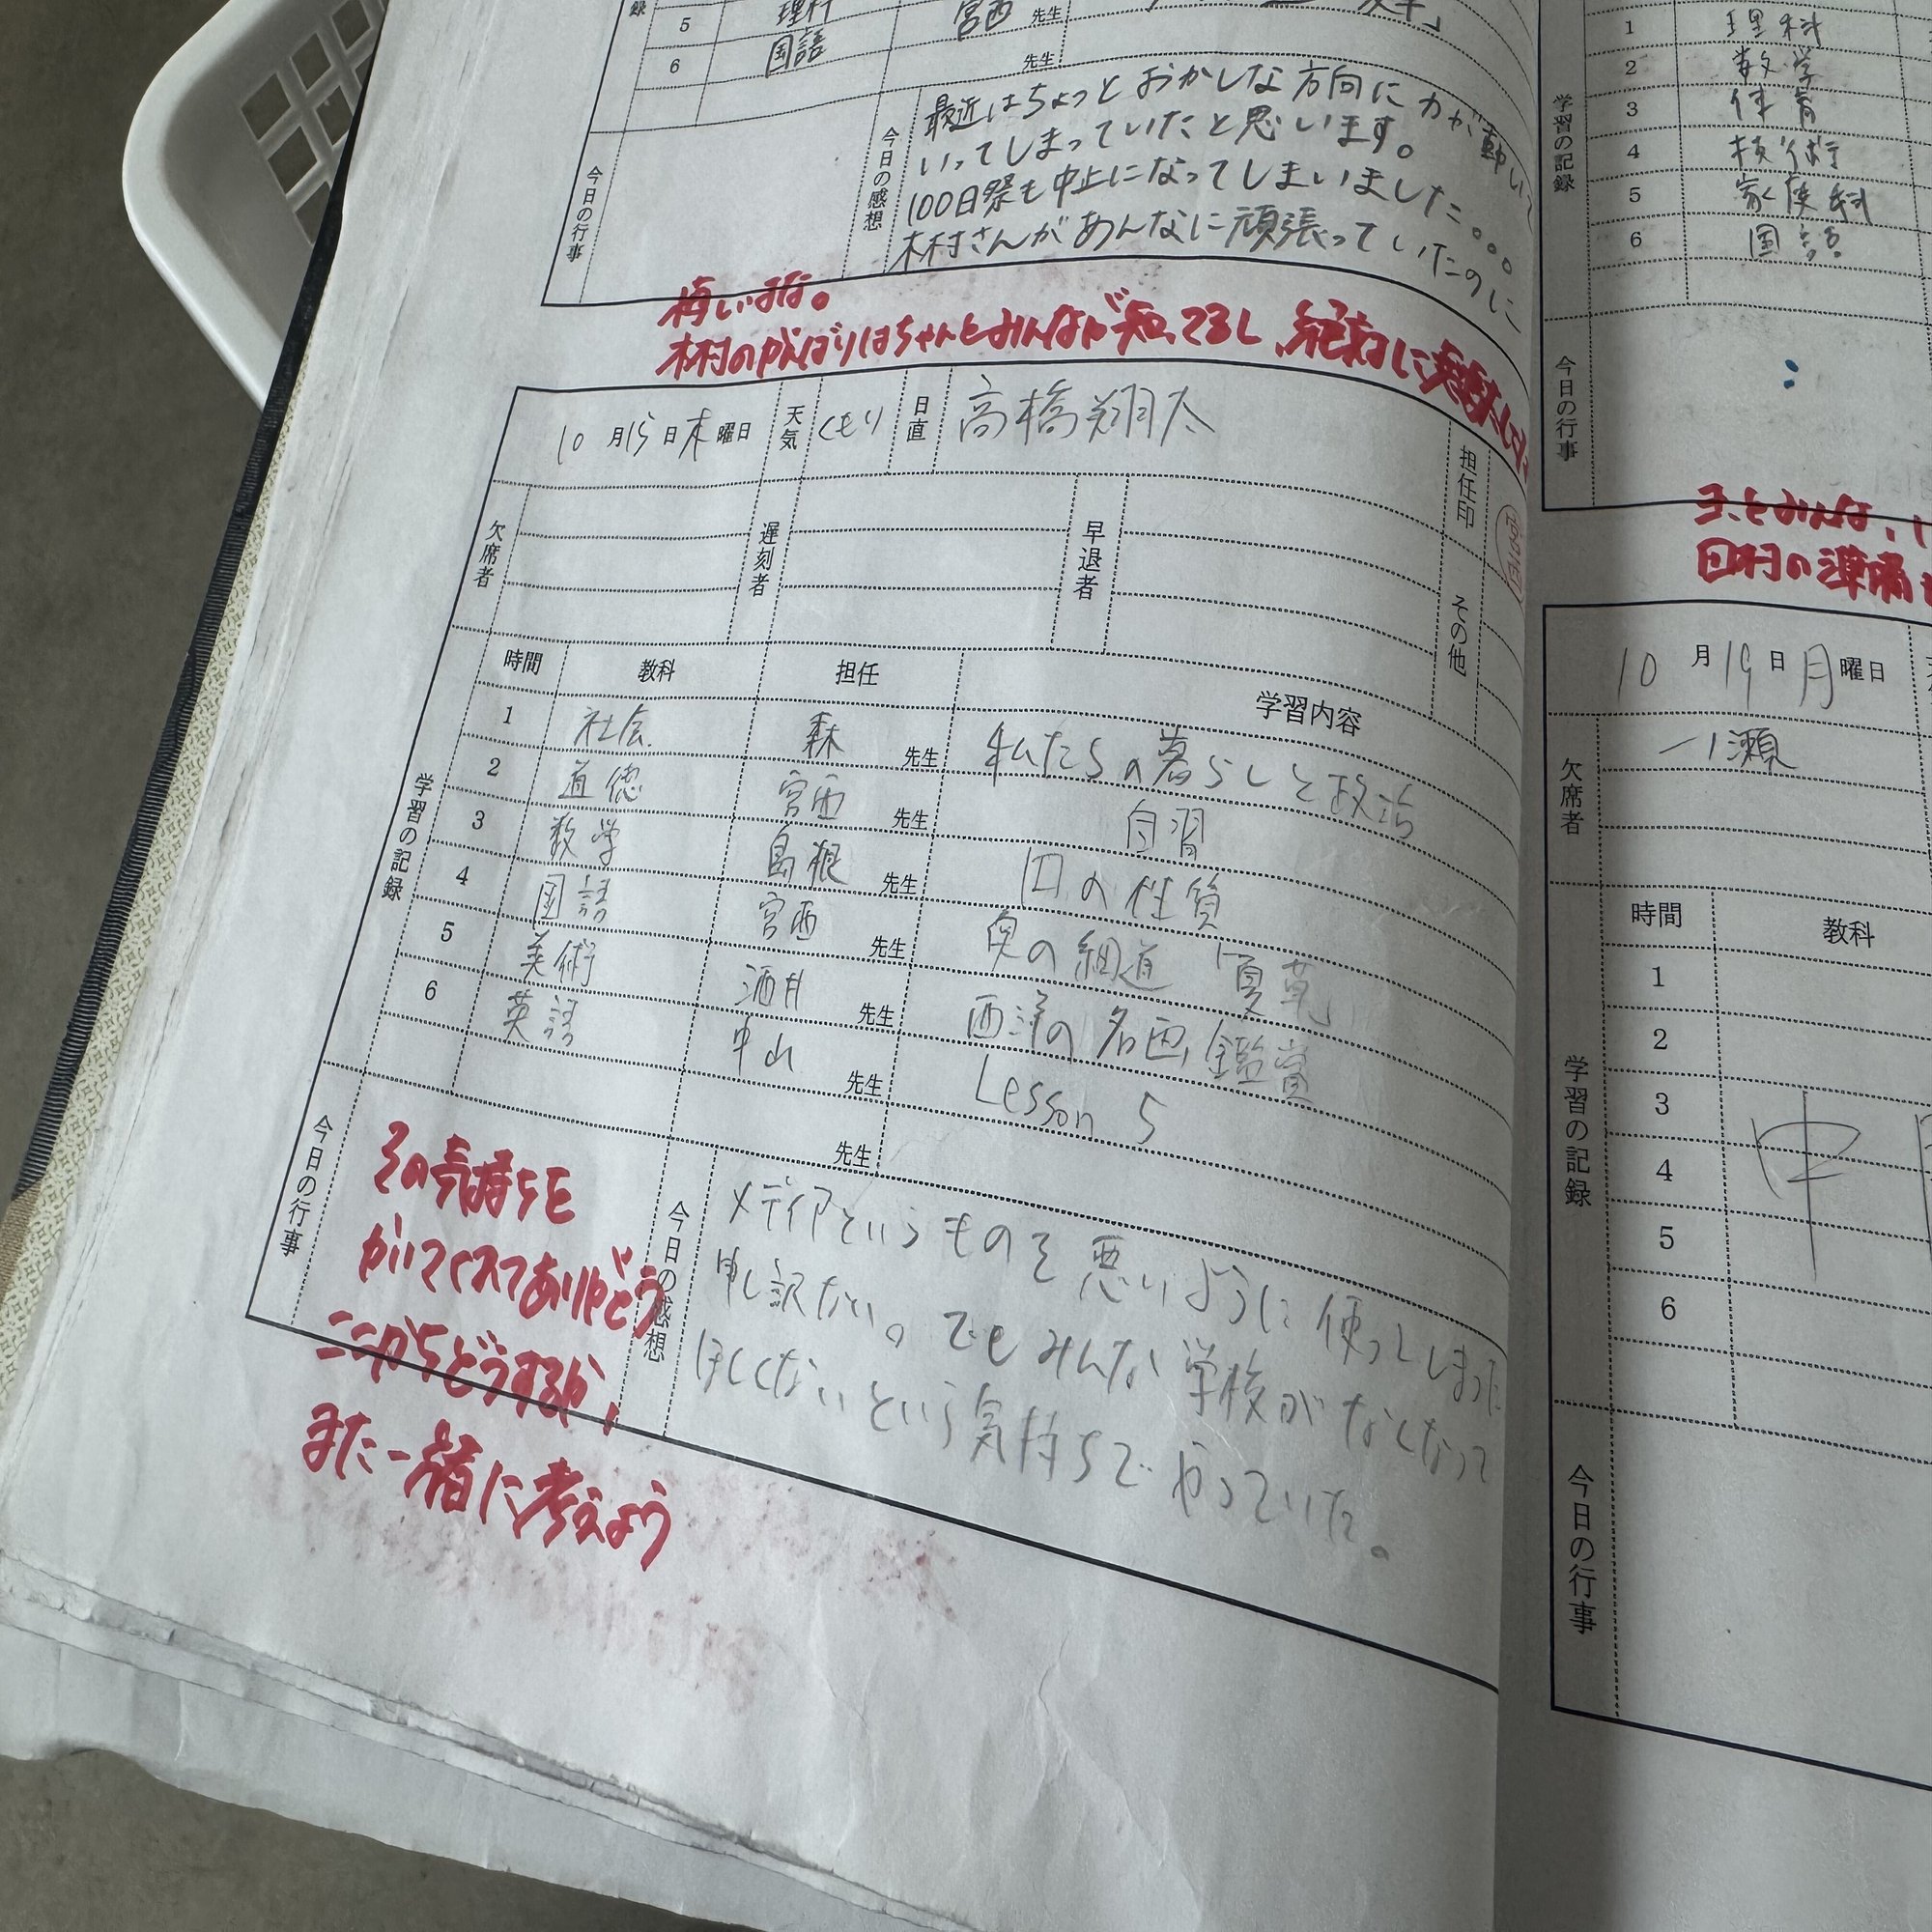 録
5 理科 宮西 先生
6 国語 先生
今日の行事
今日の感想
最近はちょっとおかしな方向に力が動いて
いってしまっていたと思います。
100日祭も中止になってしまいました。。。
木村さんがあんなに頑張っていたのに
悔いはな。
木村のがんばりはちゃんとみんなが知ってるし、絶対に
10月15日木曜日 天気 くもり 日直 高橋翔太
担任印
欠席者 遅刻者 早退者 その他
学習の記録
時間 教科 担任 学習内容
1 社会 森 先生 私たちの暮らしと政治
2 道徳 宮西 先生 自習
3 数学 島根 先生 円の性質
4 国語 宮西 先生 奥の細道 「夏草」
5 美術 酒井 先生 西洋の名画鑑賞
6 英語 中山 先生 Lesson 5
先生
今日の行事
その気持ちを
かいてくれてありがとう
ここからどうするか、
また一緒に考えよう
今日の感想
メディアというものを悪いように使ってしまった
申し訳ない。でもみんな学校がなくなって
ほしくないという気持ちでやっていた。
学習の記録
1 理科
2 数学
3 体育
4 技術
5 家庭科
6 国語
今日の行事
みんな、
田村の準備
10月19日月曜日
欠席者 一ノ瀬
学習の記録
時間 教科
1
2
3
4
5
6
中
今日の行事